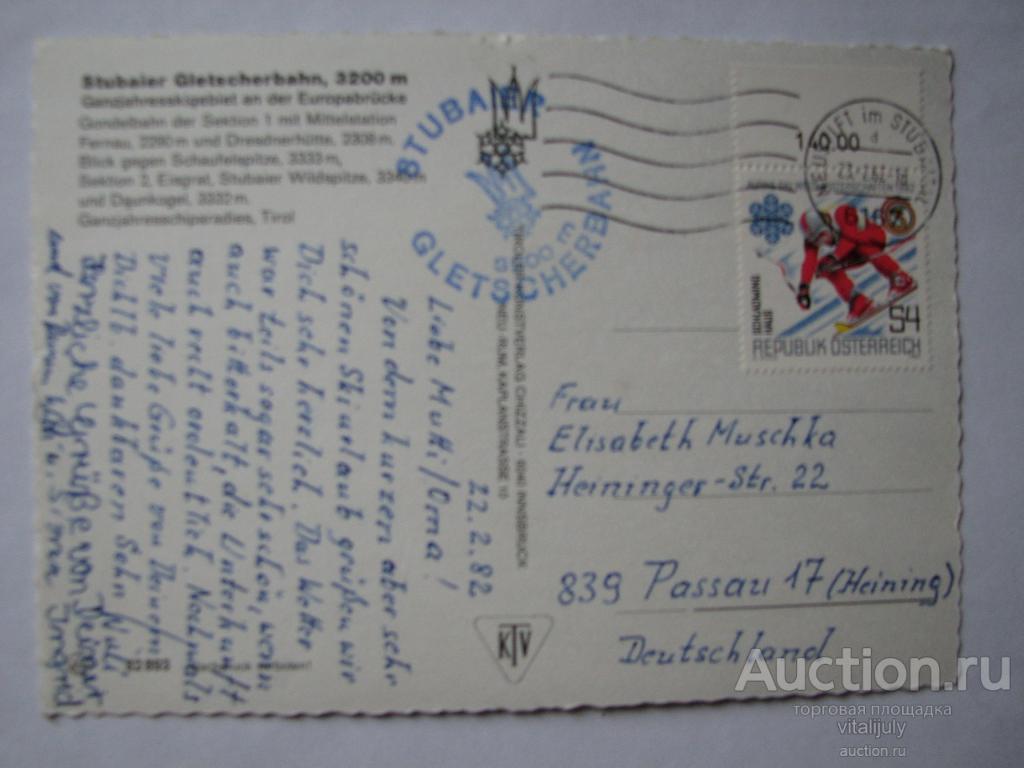 Stubaier Gletscherbahn, 3200 m
Ganzjahresskigebiet an der Europabrücke
Gondelbahn der Sektion 1 mit Mittelstation
Fernau, 2290 m und Dresdnerhütte, 2308 m,
Blick gegen Schaufelspitze, 3333 m,
Sektion 2, Eisgrat, Stubaier Wildspitze, 3340 m
und Daunkogel, 3332 m.
Ganzjahresschiparadies, Tirol
STUBAIER
GLETSCHERBAHN
3200 m
NEUSTIFT im STUBAITAL
6167
140.00
ALPINE SKI WELTMEISTERSCHAFTEN 1982
SCHLADMING
HAUS
S4
REPUBLIK ÖSTERREICH
22.2.82
Liebe Mutti/Oma!
Von dem kurzen aber sehr
schönen Skiurlaub grüßen wir
Dich sehr herzlich. Das Wetter
war teils sogar sehr schön, wenn
auch bitterkalt, die Unterkunft
auch recht ordentlich. Nochmals
viele liebe Grüße von Deinem
Dich lb. dankbaren Sohn Walt
Herzliche Grüße von
und von Irmgard
TIROLER KUNSTVERLAG CHIZZALI · 6040 INNSBRUCK
NEU RUM, KAPLANSTRASSE 10
Frau
Elisabeth Muschka
Heininger-Str. 22
839 Passau 17 (Heining)
Deutschland
KTV
93 893
Auction.ru
торговая площадка
vitalijuly
auction.ru